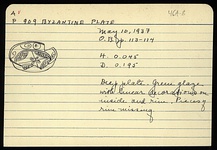 A
P 909 BYZANTINE PLATE
May 10, 1937
O.B. pp. 113-114
H. 0.045
D. 0.195
Deep plate. Green glaze
with linear decorations on
inside and rim. Piece of
rim missing.